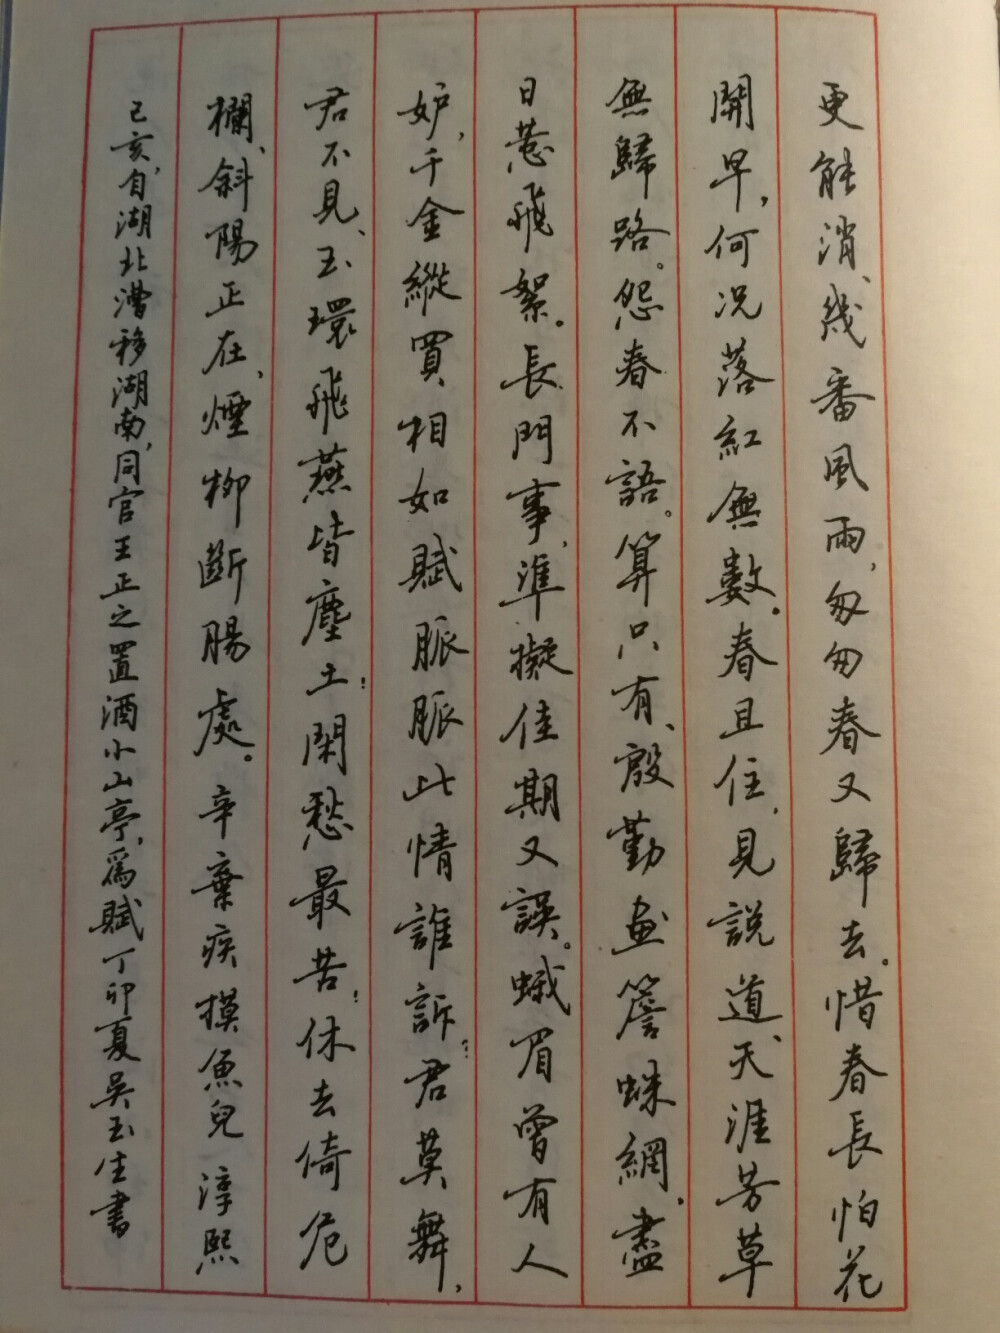 更能消、幾番風雨，匆匆春又歸去。惜春長怕花
開早，何況落紅無數。春且住，見說道、天涯芳草
無歸路。怨春不語。算只有、殷勤畫簷蛛網，盡
日惹飛絮。長門事，準擬佳期又誤。蛾眉曾有人
妒，千金縱買相如賦脈脈此情誰訴？君莫舞，
君不見、玉環飛燕皆塵土！閑愁最苦！休去倚危
欄、斜陽正在、煙柳斷腸處。辛棄疾摸魚兒 淳熙
己亥，自湖北漕移湖南，同官王正之置酒小山亭，爲賦 丁卯夏吳玉生書